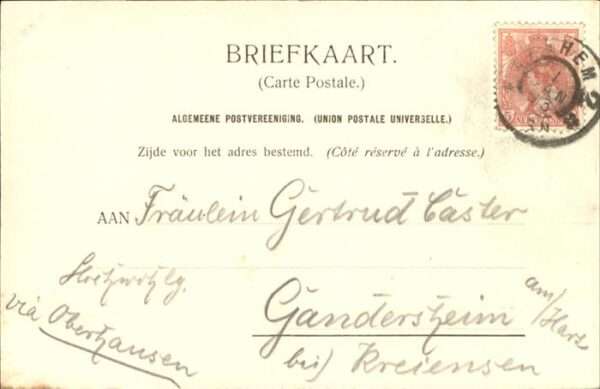 BRIEFKAART.
(Carte Postale.)
ALGEMEENE POSTVEREENIGING. (UNION POSTALE UNIVERSELLE.)
Zijde voor het adres bestemd. (Côté réservé à l'adresse.)
AAN Fräulein Gertrud Caster
via Oberhausen
Gandersheim am/Harz
bei Kreiensen
HEM